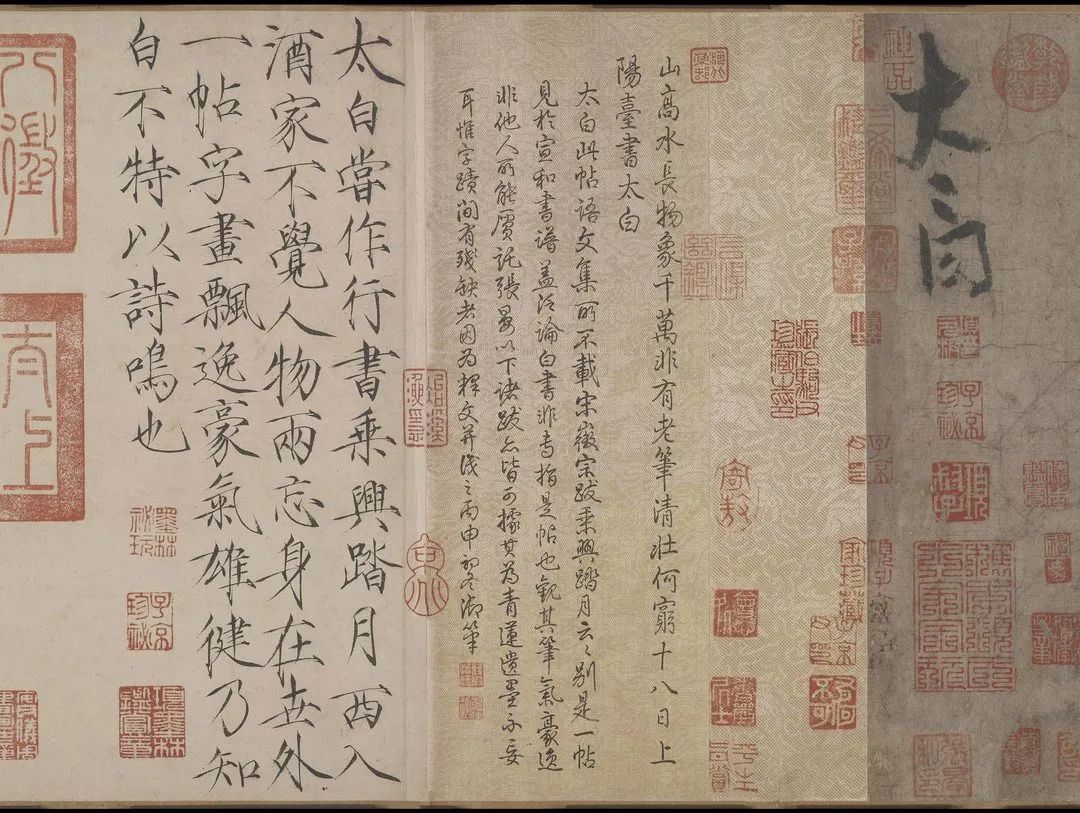 太白
山高水長物象千萬非有老筆清壯何窮十八日上
陽臺書太白
太白此帖語文集所不載宋徽宗跋乗興踏月云々別是一帖
見於宣和書譜蓋泛論白書非專指是帖也觀其筆氣豪逸
非他人所能贗託張晏以下諸跋亦皆可據其為青蓮遺墨不妄
耳惟字蹟間有殘缺者因為釋文并識之丙申初冬御筆
太白嘗作行書乗興踏月西入
酒家不覺人物兩忘身在世外
一帖字畫飄逸豪氣雄健乃知
白不特以詩鳴也
墨林秘玩
子京珍秘
項墨林鑑賞章
八徵
太上